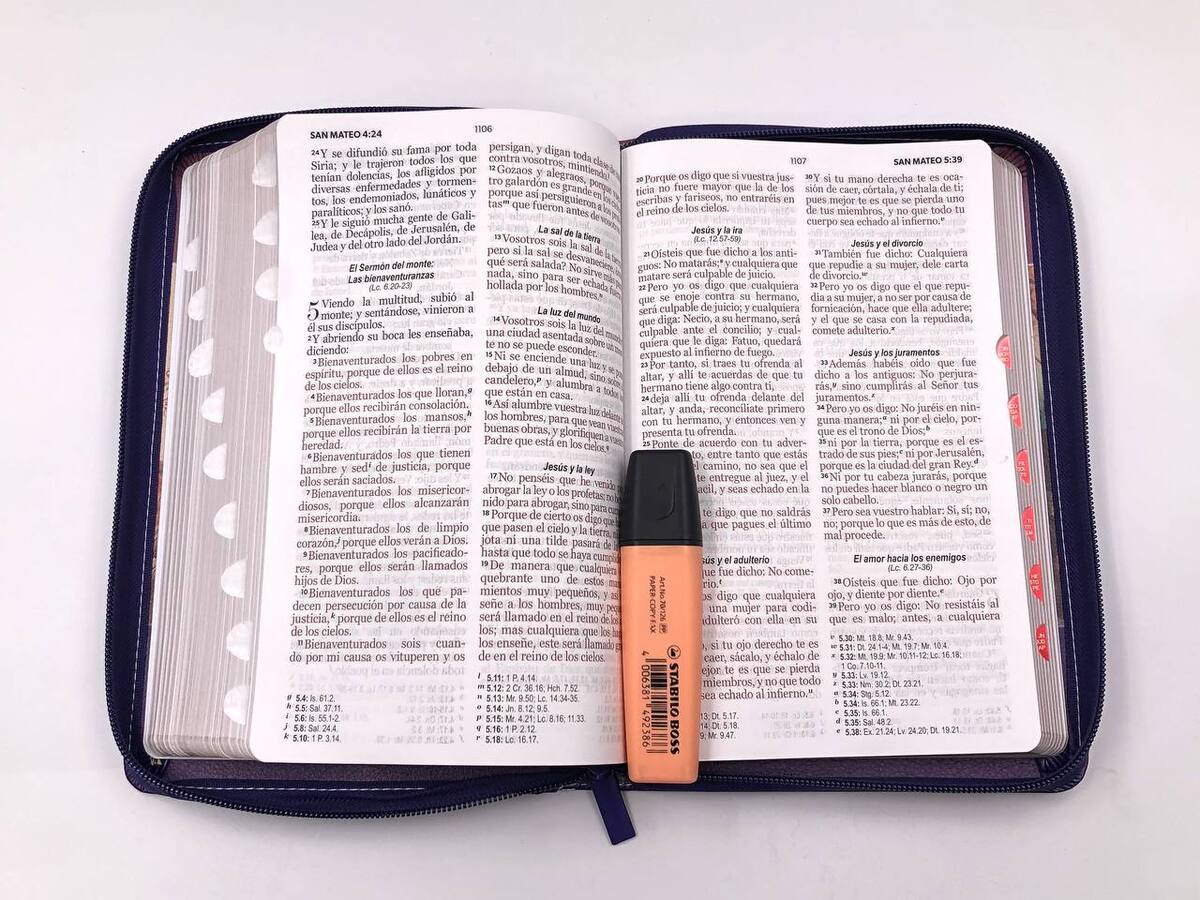 SAN MATEO 4:24
1106
24Y se difundió su fama por toda
Siria; y le trajeron todos los que
tenían dolencias, los afligidos por
diversas enfermedades y tormen-
tos, los endemoniados, lunáticos y
paralíticos; y los sanó.
25Y le siguió mucha gente de Gali-
lea, de Decápolis, de Jerusalén, de
Judea y del otro lado del Jordán.
El Sermón del monte:
Las bienaventuranzas
(Lc. 6.20-23)
5 Viendo la multitud, subió al
monte; y sentándose, vinieron a
él sus discípulos.
2Y abriendo su boca les enseñaba,
diciendo:
3Bienaventurados los pobres en
espíritu, porque de ellos es el reino
de los cielos.
4Bienaventurados los que lloran,g
porque ellos recibirán consolación.
5Bienaventurados los mansos,h
porque ellos recibirán la tierra por
heredad.
6Bienaventurados los que tienen
hambre y sedi de justicia, porque
ellos serán saciados.
7Bienaventurados los misericor-
diosos, porque ellos alcanzarán
misericordia.
8Bienaventurados los de limpio
corazón,j porque ellos verán a Dios.
9Bienaventurados los pacificado-
res, porque ellos serán llamados
hijos de Dios.
10Bienaventurados los que pa-
decen persecución por causa de la
justicia,k porque de ellos es el reino
de los cielos.
11Bienaventurados sois cuan-
do por mi causa os vituperen y os
g 5.4: Is. 61.2.
h 5.5: Sal. 37.11.
i 5.6: Is. 55.1-2.
j 5.8: Sal. 24.4.
k 5.10: 1 P. 3.14.
persigan, y digan toda clase de
contra vosotros, mintiendo.
12Gozaos y alegraos, porque
tro galardón es grande en los
porque así persiguieron a los
tasm que fueron antes de
La sal de la tierra
13Vosotros sois la sal de la tierra
pero si la sal se desvaneciere,
qué será salada? No sirve más
nada, sino para ser echada fuera
hollada por los hombres.n
La luz del mundo
14Vosotros sois la luz del mundo
una ciudad asentada sobre un
te no se puede esconder.
15Ni se enciende una luz y se
debajo de un almud, sino sobre
candelero,p y alumbra a todos
que están en casa.
16Así alumbre vuestra luz delante
los hombres, para que vean
buenas obras, y glorifiquen a
Padre que está en los cielos.q
Jesús y la ley
17No penséis que he venido
abrogar la ley o los profetas; no
nido para abrogar, sino para
18Porque de cierto os digo que
que pasen el cielo y la tierra,
jota ni una tilde pasará de
hasta que todo se haya
19De manera que cualquiera
quebrante uno de estos
mientos muy pequeños, y
señe a los hombres, muy
será llamado en el reino de los
los; mas cualquiera que los
los enseñe, este será llamado
de en el reino de los cielos.
l 5.11: 1 P. 4.14.
m 5.12: 2 Cr. 36.16; Hch. 7.52.
n 5.13: Mr. 9.50; Lc. 14.34-35.
o 5.14: Jn. 8.12; 9.5.
p 5.15: Mr. 4.21; Lc. 8.16; 11.33.
q 5.16: 1 P. 2.12.
r 5.18: Lc. 16.17.
1107
SAN MATEO 5:39
20Porque os digo que si vuestra jus-
ticia no fuere mayor que la de los
escribas y fariseos, no entraréis en
el reino de los cielos.
Jesús y la ira
(Lc. 12.57-59)
21Oísteis que fue dicho a los anti-
guos: No matarás;s y cualquiera que
matare será culpable de juicio.
22Pero yo os digo que cualquiera
que se enoje contra su hermano,
será culpable de juicio; y cualquiera
que diga: Necio, a su hermano, será
culpable ante el concilio; y cual-
quiera que le diga: Fatuo, quedará
expuesto al infierno de fuego.
23Por tanto, si traes tu ofrenda al
altar, y allí te acuerdas de que tu
hermano tiene algo contra ti,
24deja allí tu ofrenda delante del
altar, y anda, reconcíliate primero
con tu hermano, y entonces ven y
presenta tu ofrenda.
25Ponte de acuerdo con tu adver-
entre tanto que estás
el camino, no sea que el
te entregue al juez, y el
y seas echado en la
te digo que no saldrás
que pagues el último
y el adulterio
que fue dicho: No come-
os digo que cualquiera
una mujer para codi-
adulteró con ella en su
si tu ojo derecho te es
caer, sácalo, y échalo de
mejor te es que se pierda
miembros, y no que todo
sea echado al infierno.u
13; Dt. 5.17.
14; Dt. 5.18.
9; Mr. 9.47.
30Y si tu mano derecha te es oca-
sión de caer, córtala, y échala de ti;
pues mejor te es que se pierda uno
de tus miembros, y no que todo tu
cuerpo sea echado al infierno.v
Jesús y el divorcio
31También fue dicho: Cualquiera
que repudie a su mujer, dele carta
de divorcio.w
32Pero yo os digo que el que repu-
dia a su mujer, a no ser por causa de
fornicación, hace que ella adultere;
y el que se casa con la repudiada,
comete adulterio.x
Jesús y los juramentos
33Además habéis oído que fue
dicho a los antiguos: No perjura-
rás,y sino cumplirás al Señor tus
juramentos.z
34Pero yo os digo: No juréis en nin-
guna manera;a ni por el cielo, por-
que es el trono de Dios;b
35ni por la tierra, porque es el es-
trado de sus pies;c ni por Jerusalén,
porque es la ciudad del gran Rey.d
36Ni por tu cabeza jurarás, porque
no puedes hacer blanco o negro un
solo cabello.
37Pero sea vuestro hablar: Sí, sí; no,
no; porque lo que es más de esto, de
mal procede.
El amor hacia los enemigos
(Lc. 6.27-36)
38Oísteis que fue dicho: Ojo por
ojo, y diente por diente.e
39Pero yo os digo: No resistáis al
que es malo; antes, a cualquiera
v 5.30: Mt. 18.8; Mr. 9.43.
w 5.31: Dt. 24.1-4; Mt. 19.7; Mr. 10.4.
x 5.32: Mt. 19.9; Mr. 10.11-12; Lc. 16.18;
1 Co. 7.10-11.
y 5.33: Lv. 19.12.
z 5.33: Nm. 30.2; Dt. 23.21.
a 5.34: Stg. 5.12.
b 5.34: Is. 66.1; Mt. 23.22.
c 5.35: Is. 66.1.
d 5.35: Sal. 48.2.
e 5.38: Ex. 21.24; Lv. 24.20; Dt. 19.21.
Art.No.70/126 PP
PAPER-COPY-FAX
4 006381 492386
STABILO BOSS